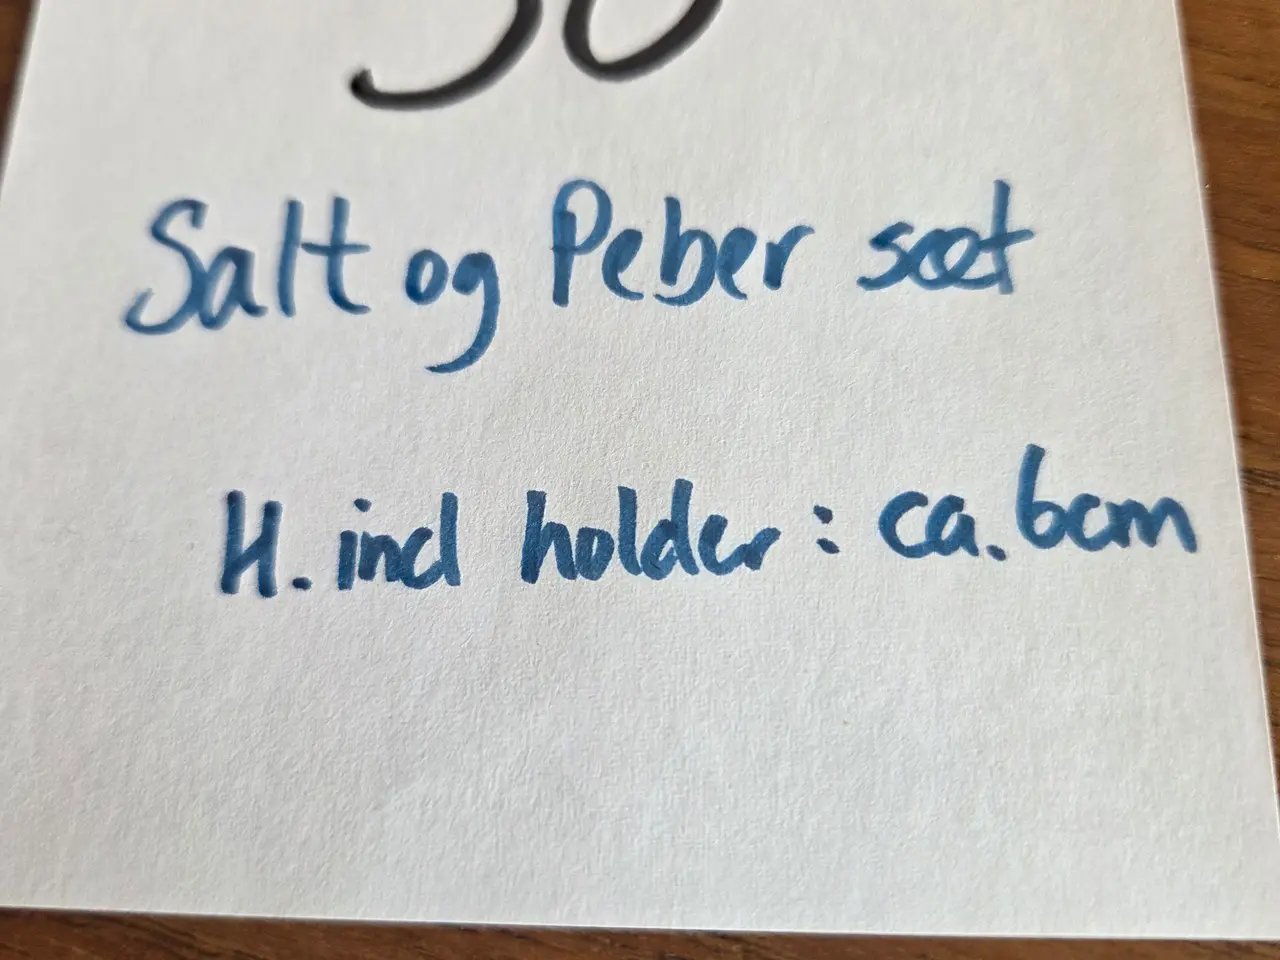 Salt og Peber sæt
H. incl holder: ca. 6cm